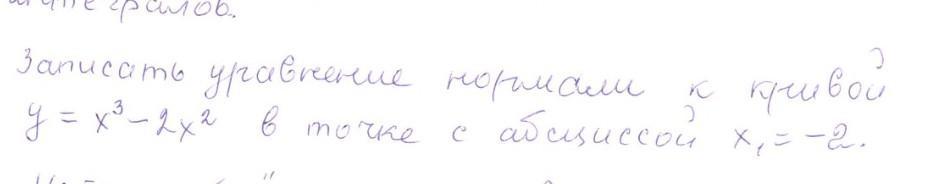 интегралов.
Записать уравнение нормали к кривой
y = x³ – 2x² в точке с абсциссой x₁ = –2.